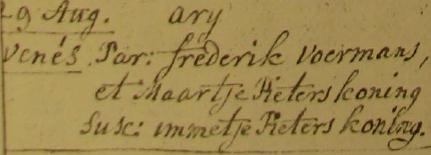 29 Aug. Ary
Venés. Par: frederik Voermans,
et Maartje Pieters koning
Susc: immetje Pieters koning.